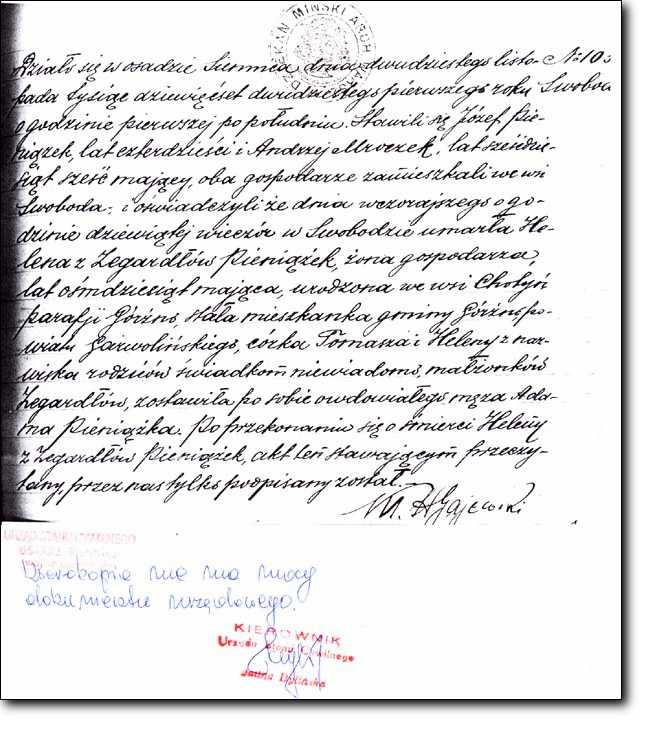 DZIEKAN MIŃSKI ARCH
Działo się w osadzie Siennica dnia dwudziestego listo- № 10
pada tysiąc dziewięćset dwudziestego pierwszego roku Swoboda
o godzinie pierwszej po południu. Stawili się Józef Pie-
niążek, lat czterdzieści i Andrzej Mroczek, lat sześćdzie-
siąt sześć mający, oba gospodarze zamieszkali we wsi
Swoboda, i oświadczyli że dnia wczorajszego o go-
dzinie dziewiątej wieczór w Swobodzie umarła He-
lena z Zegardłów Pieniążek, żona gospodarza,
lat ośmdziesiąt mająca, urodzona we wsi Chotyń
parafji Górzno, stała mieszkanka gminy Górzno po-
wiatu Garwolińskiego, córka Tomasza i Heleny z naz-
wiska rodziców świadkom niewiadomo, małżonków
Zegardłów, zostawiła po sobie owdowiałego męża Ada-
ma Pieniążka. Po przekonaniu się o śmierci Heleny
z Zegardłów Pieniążek, akt ten stawającym przeczy-
tany, przez nas tylko podpisany został.
Gajewski
Kserokopia nie ma mocy
dokumentu urzędowego.
KIEROWNIK
Urzędu Stanu Cywilnego
Janina